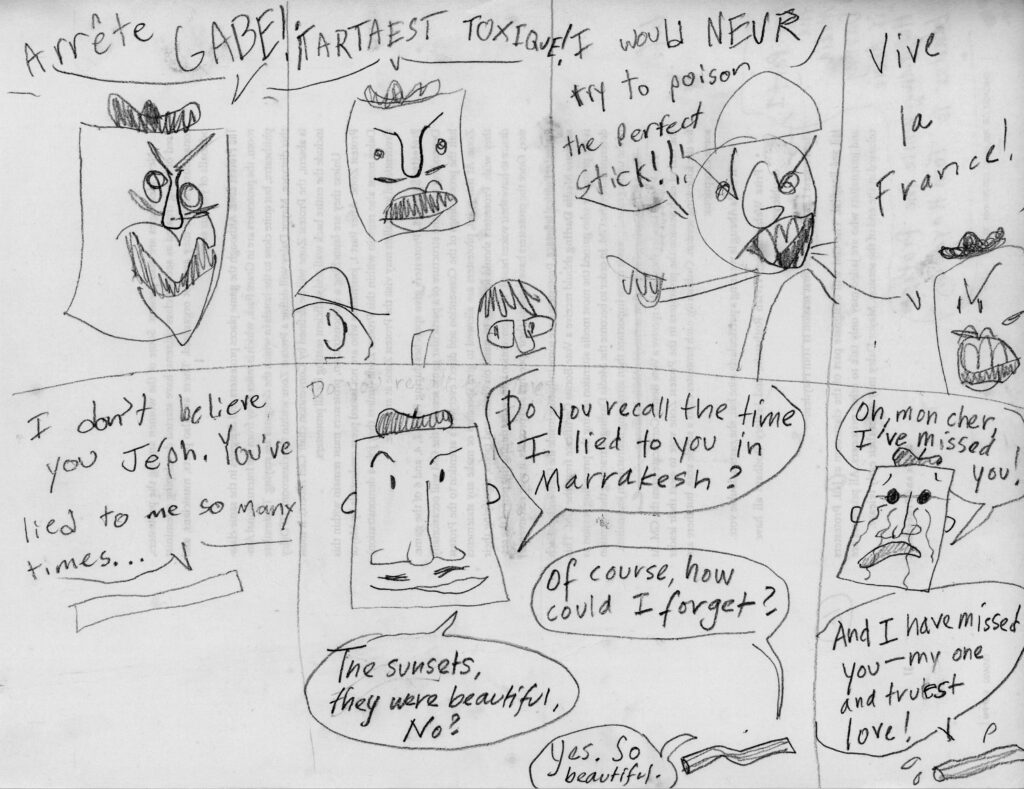 Arrête
GABE!
TARTAEST TOXIQUE!
I would NEVR
try to poison
the perfect
stick!!!
Vive
la
France!
I don't believe
you Jéph. You've
lied to me so many
times...
Do you recall the time
I lied to you in
Marrakesh?
Of course, how
could I forget?
The sunsets,
they were beautiful,
No?
Yes. So
beautiful.
Oh, mon cher,
I've missed
you!
And I have missed
you—my one
and truest
love!